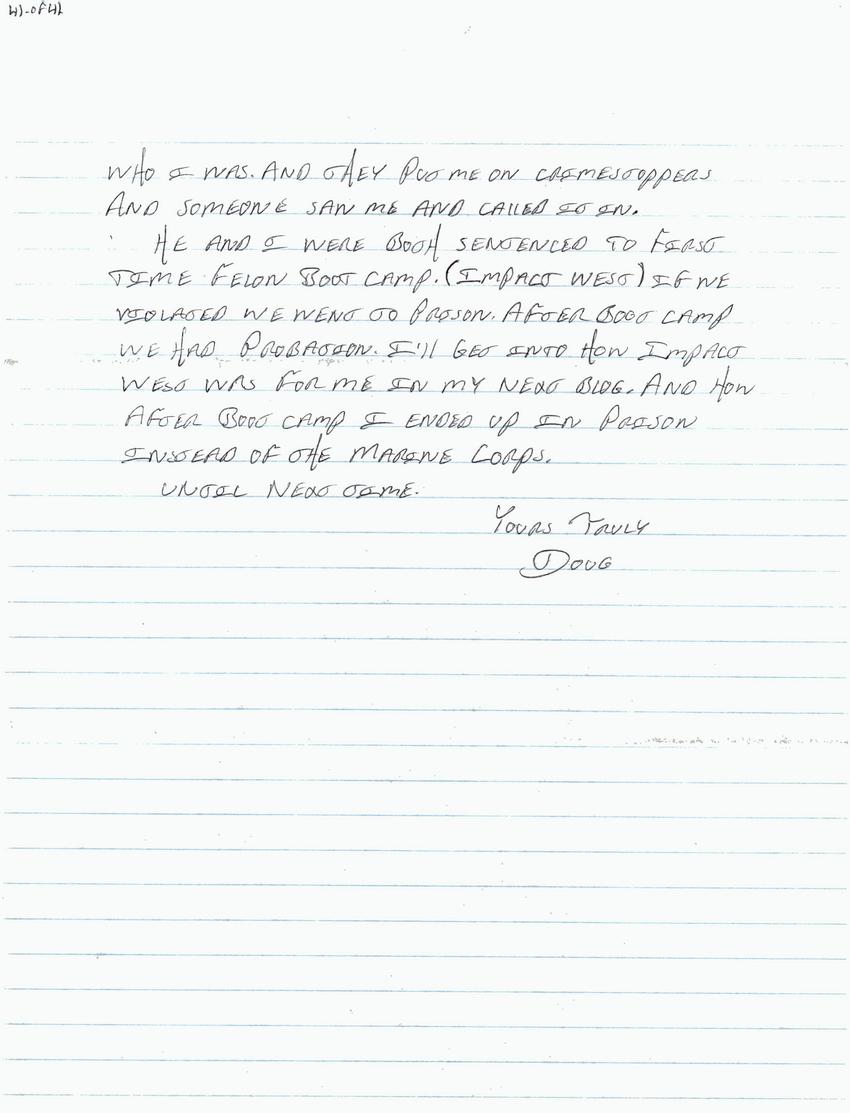 4)-OF4)
WHO I WAS. AND THEY PUT ME ON CRIMESTOPPERS
AND SOMEONE SAW ME AND CALLED IT IN.
HE AND I WERE BOTH SENTENCED TO FIRST
TIME FELON BOOT CAMP. (IMPACT WEST) IF WE
VIOLATED WE WENT TO PRISON. AFTER BOOT CAMP
WE HAD PROBATION. I'll GET INTO HOW IMPACT
WEST WAS FOR ME IN MY NEXT BLOG. AND HOW
AFTER BOOT CAMP I ENDED UP IN PRISON
INSTEAD OF THE MARINE CORPS.
UNTIL NEXT TIME.
YOURS TRULY
DOUG